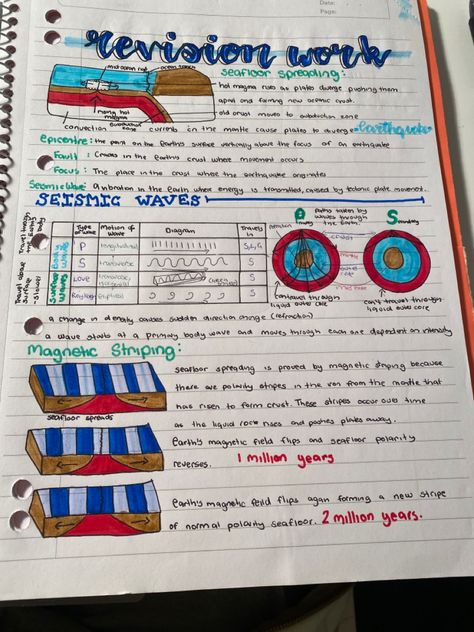 Date:
Page:
revision work
seafloor spreading:
mid ocean rigt
ocean trench
rising hot magma
subduction zone
hot magma rises as plates diverge pushing them
apart and forming new oceanic crust.
old crust moves to subduction zone
convection currents in the mantle cause plates to diverge
earthquake
Epicentre: the point on the Earth's surface vertically above the focus of an earthquake
Fault: cracks in the Earth's crust where movement occurs
Focus: The place in the crust where the earthquake originates
Seismic Wave: a vibration in the Earth where energy is transmitted, caused by tectonic plate movement.
SEISMIC WAVES
Type of wave
Motion of Wave
Diagram
Travels in
P
longitudinal
S,L,G
S
transverse
S
Love
S
Rayleigh
S
Body waves
Surface waves
Travel through the Earth's body
Travel above surface -slower
P
paths taken by waves through the Earth.
S
can travel through liquid outer core
can't travel through liquid outer core
a change in density causes sudden direction change (refraction)
a wave starts at a primary body wave and moves through each one dependent on intensity
Magnetic Striping:
seafloor spreading is proved by magnetic striping because
there are polarity stripes in the iron from the mantle that
has risen to form crust. These stripes occur over time
as the liquid rock rises and pushes plates away.
seafloor spreads
Earth's magnetic field flips and seafloor polarity
reverses. 1 million years
earth's magnetic feild flips again forming a new stripe
of normal polarity seafloor. 2 million years.